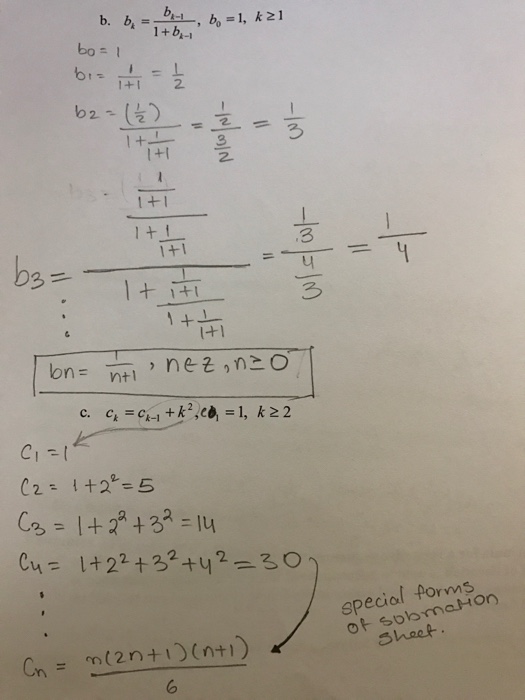 b. b_k = b_{k-1} / (1 + b_{k-1}), b_0 = 1, k ≥ 1
b0 = 1
b1 = 1/(1+1) = 1/2
b2 = (1/2) / (1 + 1/(1+1)) = (1/2) / (3/2) = 1/3
b3 = ((1/(1+1)) / (1 + 1/(1+1))) / (1 + (1/(1+1)) / (1 + 1/(1+1))) = (1/3) / (4/3) = 1/4
⋮
bn = 1/(n+1), n ∈ z, n ≥ 0
c. c_k = c_{k-1} + k², c_1 = 1, k ≥ 2
C1 = 1
C2 = 1 + 2² = 5
C3 = 1 + 2² + 3² = 14
C4 = 1 + 2² + 3² + 4² = 30
⋮
special forms
of submation
sheet.
Cn = n(2n+1)(n+1) / 6